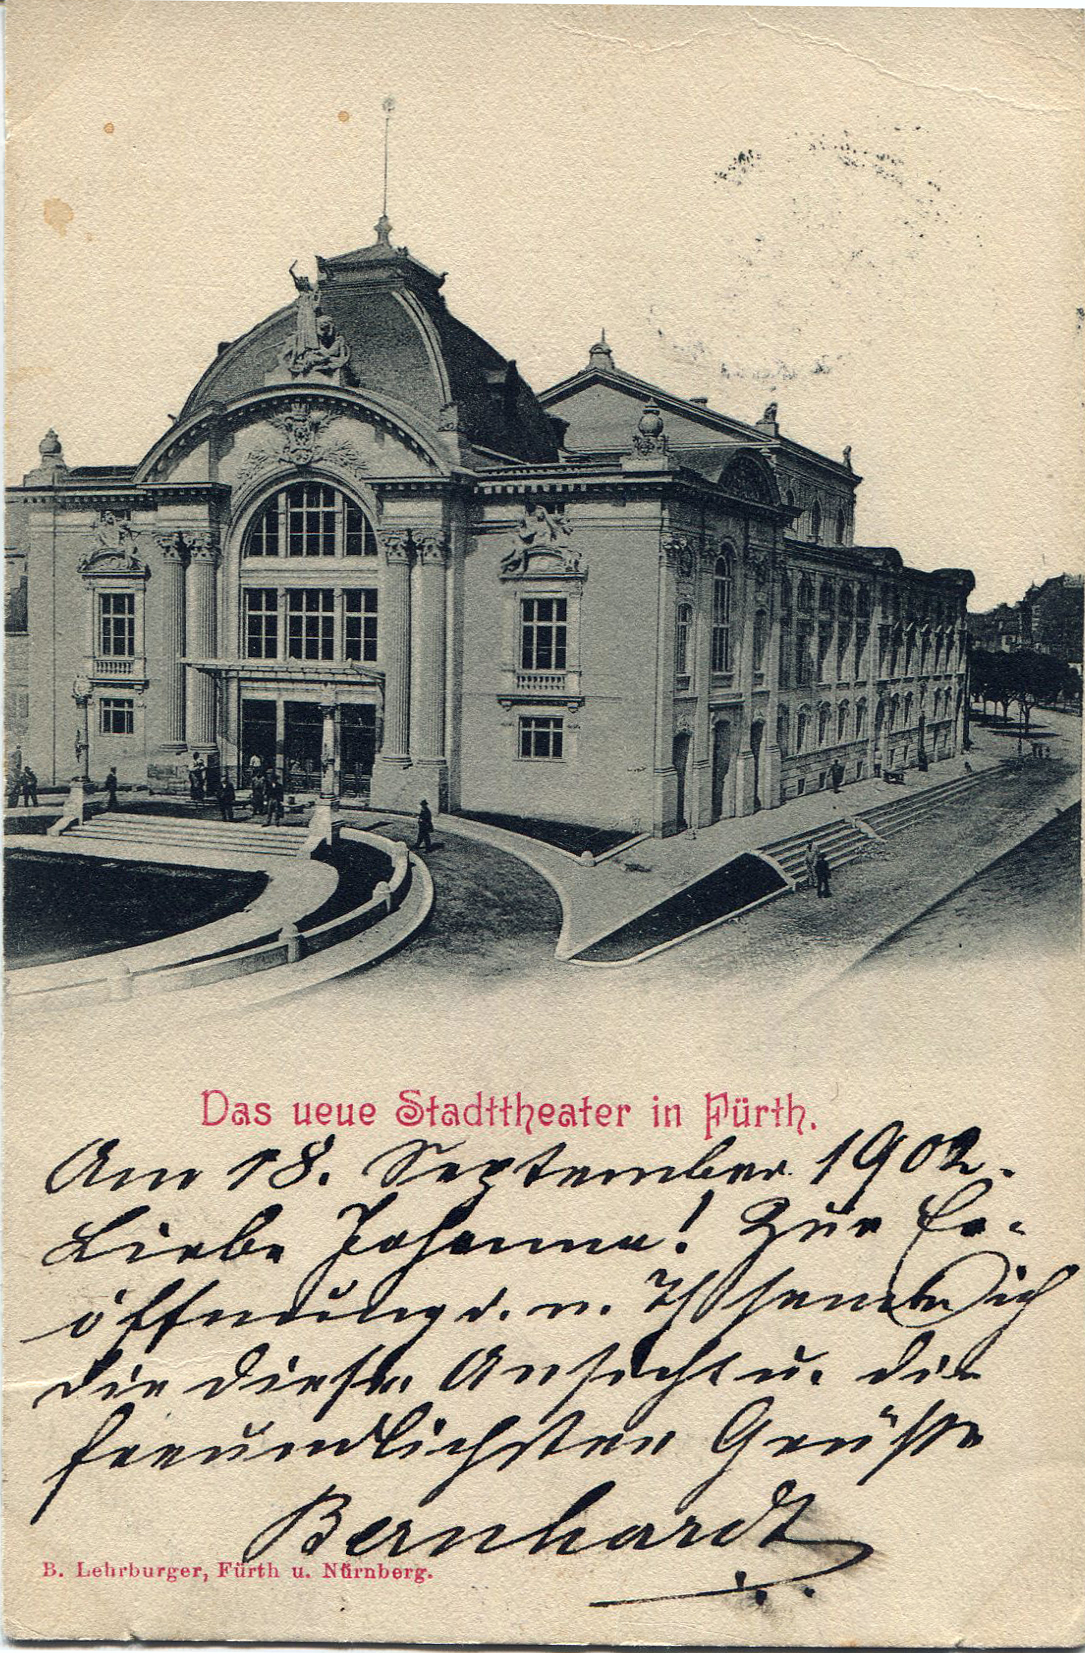 Das neue Stadttheater in Fürth.
Am 18. September 1902.
Liebe Johanna! Zur Er-
öffnung d. n. Th sende ich
dir diese Ansicht u. die
freundlichsten Grüße
Bernhardt
B. Lehrburger, Fürth u. Nürnberg.